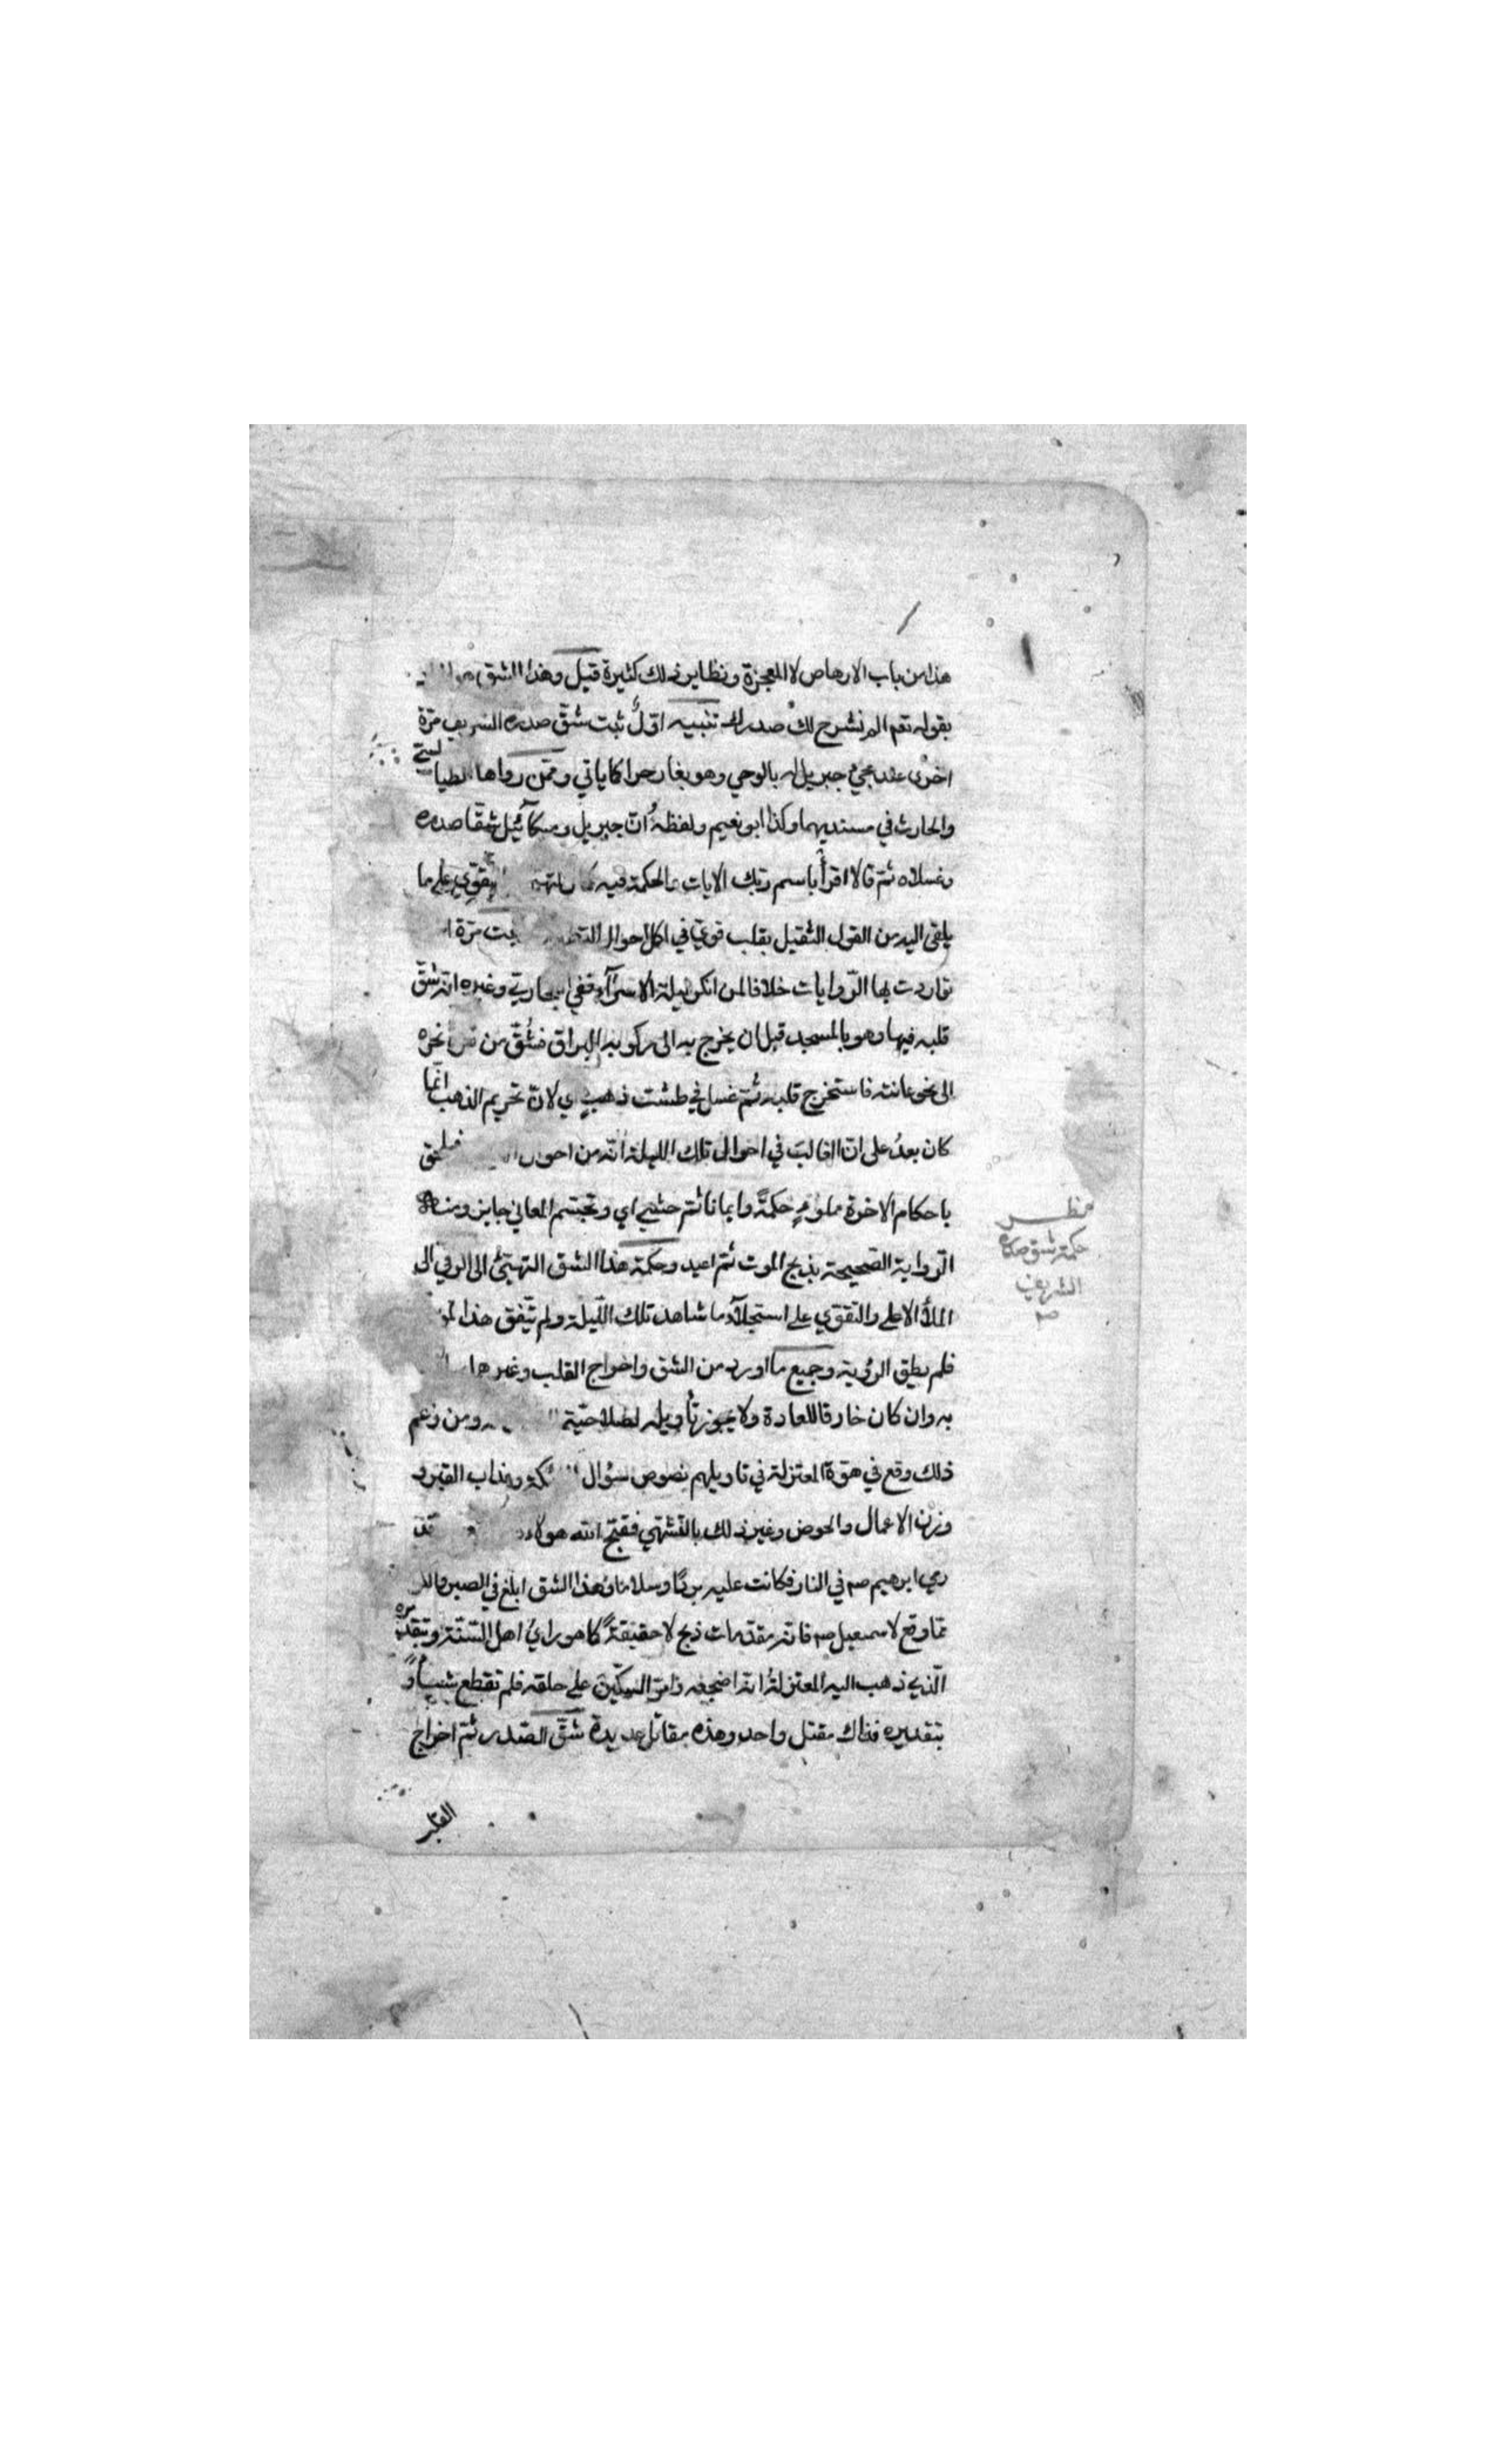 هذا من باب الارهاص لا المعجزة ونظاير ذلك كثيرة قيل وهذا الشق
بقوله تعم الم نشرح لك صدرك تنبيه اول ثبت شق صدره الشريف مرة
اخرى عند مجيء جبريل له بالوحي وهو بغار حرا كما ياتي وممن رواها الطيا لسي
والحارث في مسنديهما وكذا ابو نعيم ولفظه ان جبريل وميكآئيل شقا صدره
وغسلاه ثم قالا اقرأ باسم ربك الايات والحكمة فيه ليقوي على ما
يلقى اليه من القول الثقيل بقلب قوي في اكمل احوال مرة
تواردت بها الروايات خلافا لمن انكر ليلة الاسرآء ففي البخاري وغيره انه شق
قلبه فيها وهو بالمسجد قبل ان يخرج به الى ركوبه البراق فشق من نحره
الى نحو عانته فاستخرج قلبه ثم غسل في طشت ذهب اي لان تحريم الذهب انما
كان بعد على ان الغالب في احوال تلك الليلة انه من احوال فيلحق
باحكام الاخرة مملوء حكمة وايمانا ثم حشي اي وتجسم المعاني جايز ومنه
الرواية الصحيحة بذبح الموت ثم اعيد وحكمة هذا الشق التهيئ الى الرقي الى
الملأ الاعلى والتقوي على استجلآء ما شاهد تلك الليلة ولم يتفق هذا
فلم يطق الرؤية وجميع ما اورد من الشق واخراج القلب وغيرها
به وان كان خارقا للعادة ولا يجوز تأويله لصلاحية ومن زعم
ذلك وقع في هوة المعتزلة في تاويلهم نصوص سؤال وعذاب القبر و
وزن الاعمال والحوض وغير ذلك بالتشهي فقبح الله هولاء قد
رمي ابرهيم صم في النار فكانت عليه بردا وسلاما وهذا الشق ابلغ في الصبر
مما وقع لاسمعيل صم فانه مقدمات ذبح لا حقيقة كما هو راي اهل السنة وبتقديره
الذي ذهب اليه المعتزلة انه اضجعه وامر السكين على حلقه فلم تقطع شيئا و
بتقديره فذاك مقتل واحد وهذه مقاتل عديدة شق الصدر ثم اخراج
القلب
مظلب
حكمة شق صدره
الشريف
صم